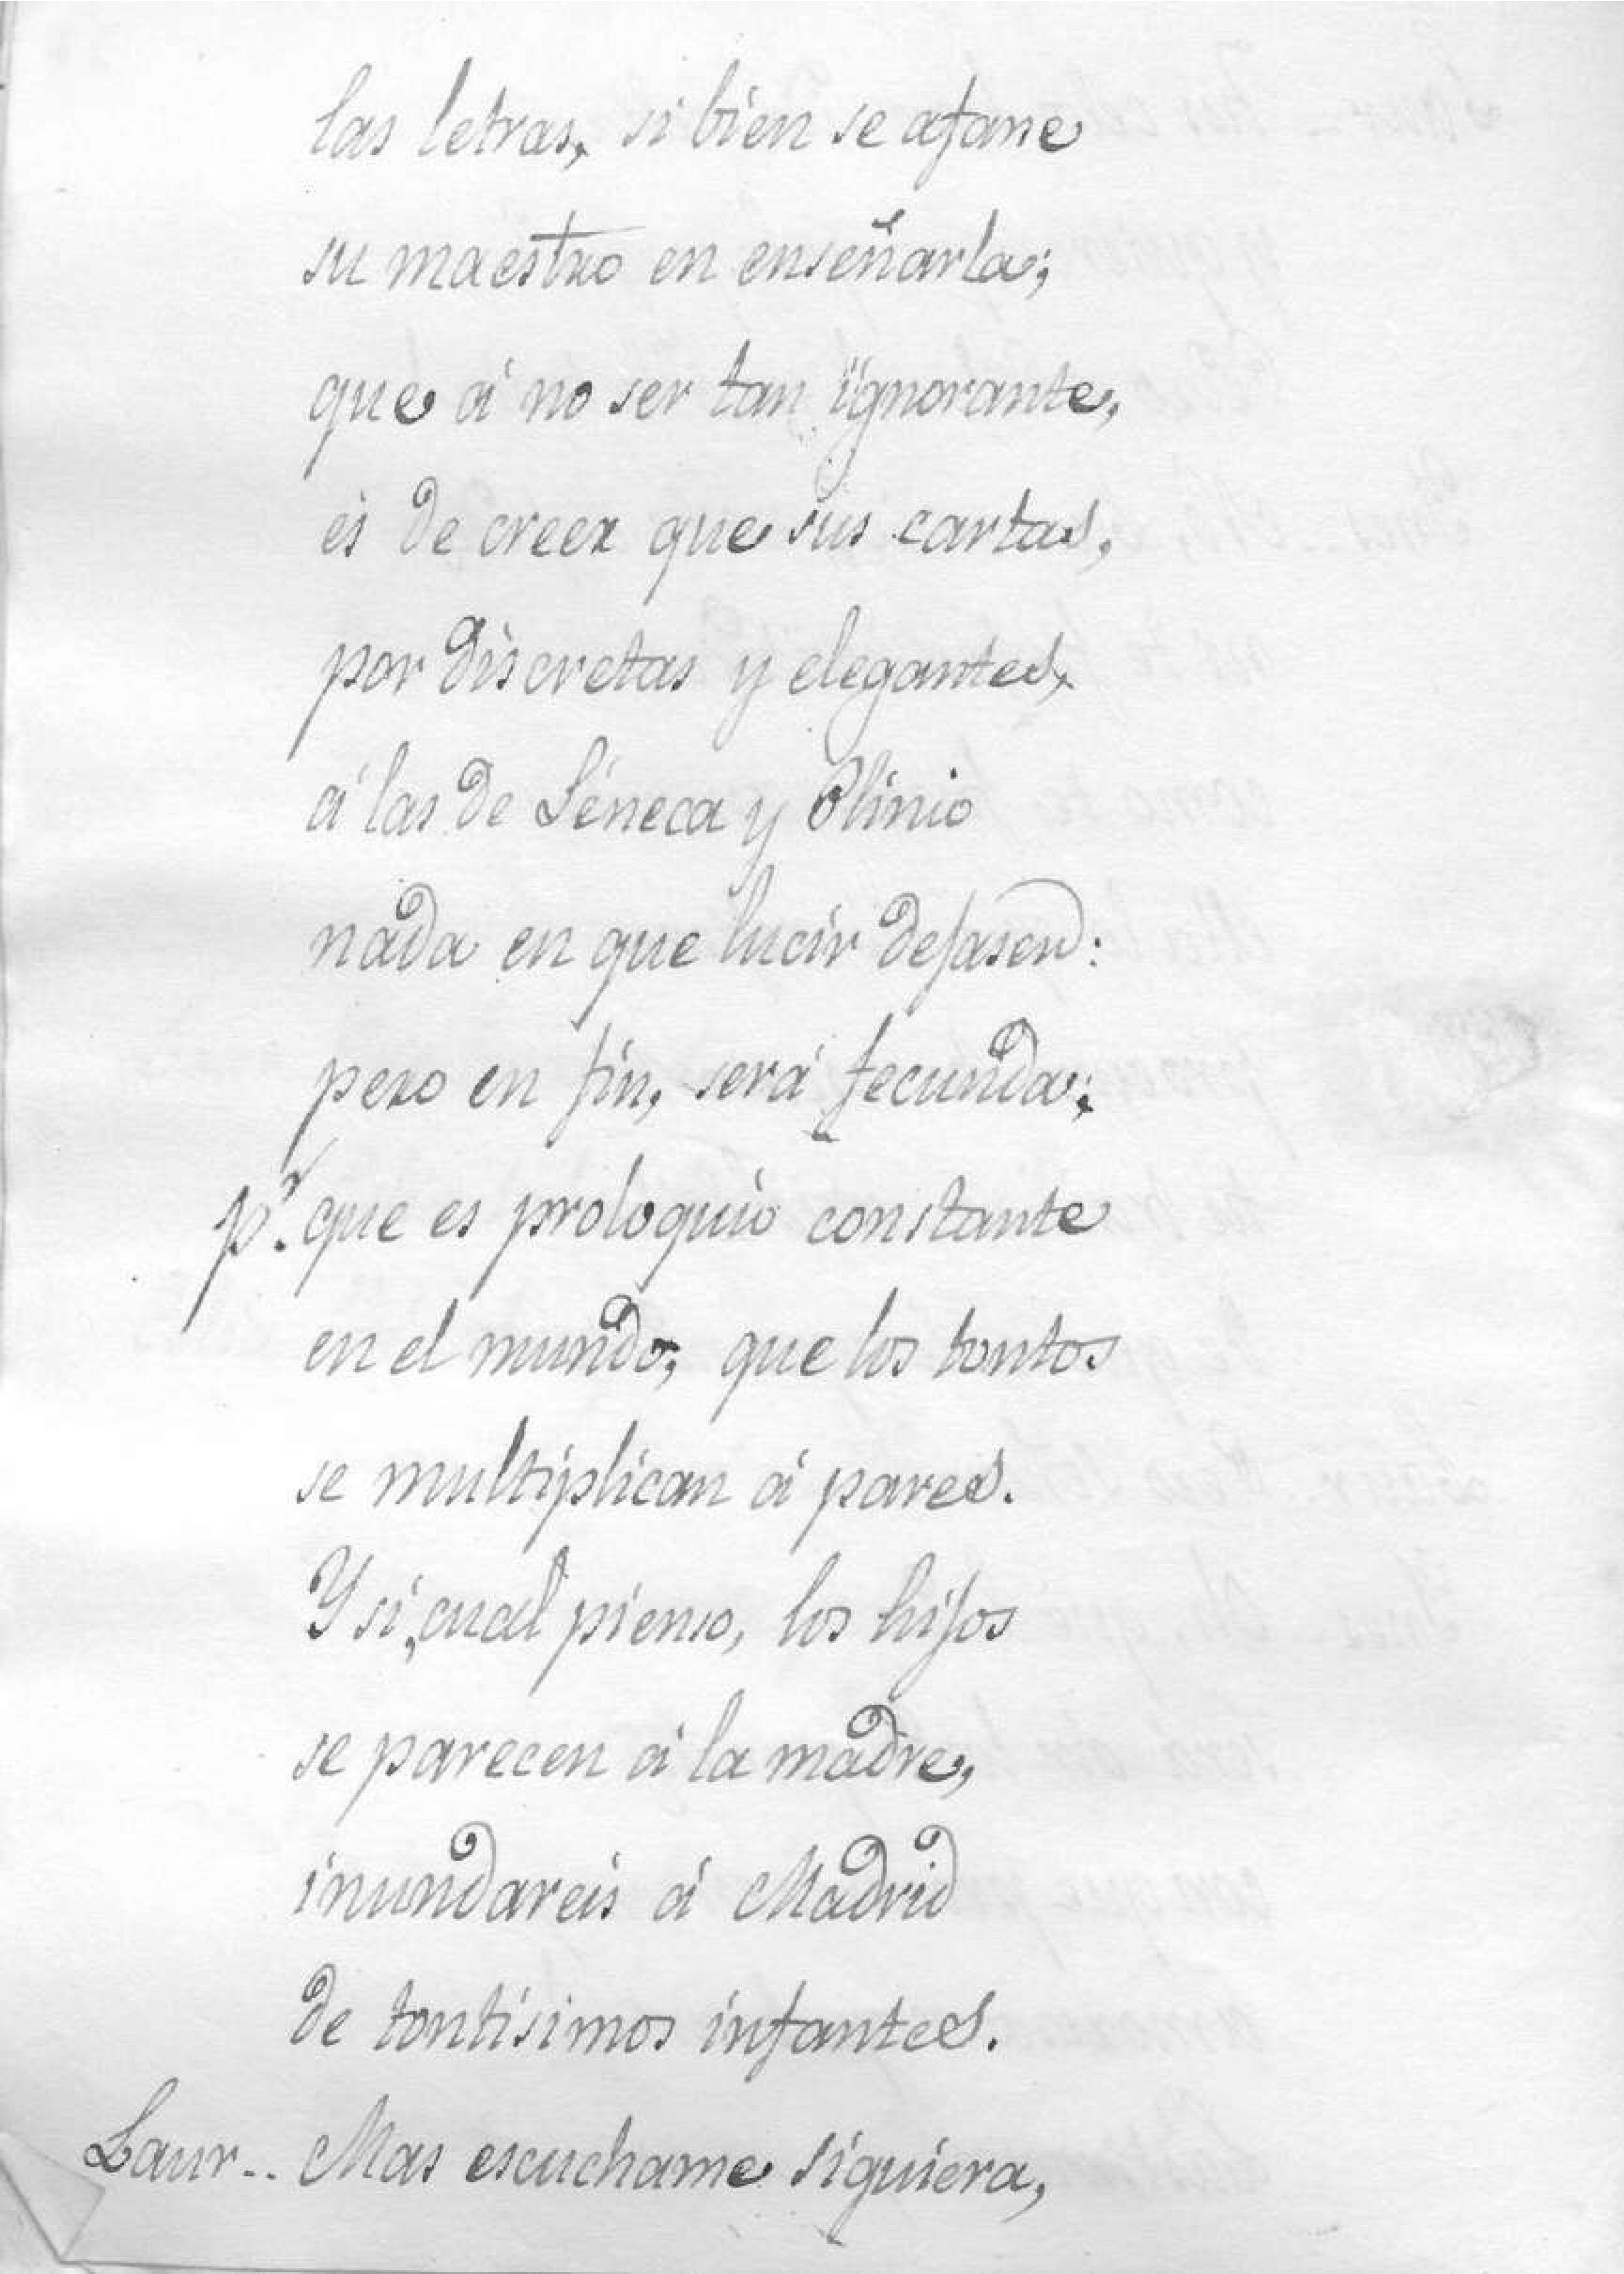 las letras, si bien se afane
su maestro en enseñarla;
que á no ser tan ignorante,
es de creer que sus cartas,
por discretas y elegantes,
á las de Séneca y Plinio
nada en que lucir dejasen:
pero en fin, será fecunda;
p.r que es proloquio constante
en el mundo, que los tontos
se multiplican á pares.
Y si, cual pienso, los hijos
se parecen á la madre,
inundareis á Madrid
de tontísimos infantes.
Laur.. Mas escuchame siquiera,